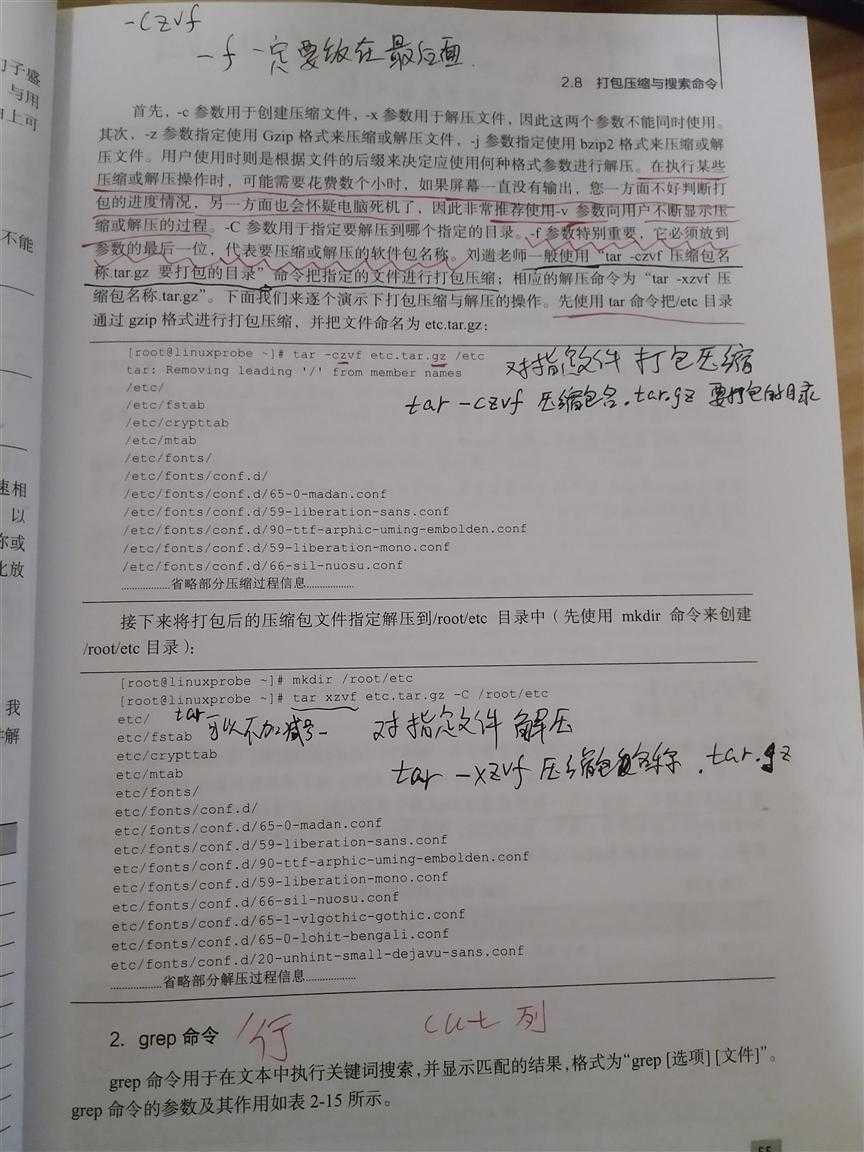 -czvf
-f 一定要放在最后面.
2.8 打包压缩与搜索命令
首先，-c 参数用于创建压缩文件，-x 参数用于解压文件，因此这两个参数不能同时使用。
其次，-z 参数指定使用 Gzip 格式来压缩或解压文件，-j 参数指定使用 bzip2 格式来压缩或解
压文件。用户使用时则是根据文件的后缀来决定应使用何种格式参数进行解压。在执行某些
压缩或解压操作时，可能需要花费数个小时，如果屏幕一直没有输出，您一方面不好判断打
包的进度情况，另一方面也会怀疑电脑死机了，因此非常推荐使用-v 参数向用户不断显示压
缩或解压的过程。-C 参数用于指定要解压到哪个指定的目录。-f 参数特别重要，它必须放到
参数的最后一位，代表要压缩或解压的软件包名称。刘遄老师一般使用“tar -czvf 压缩包名
称.tar.gz 要打包的目录”命令把指定的文件进行打包压缩；相应的解压命令为“tar -xzvf 压
缩包名称.tar.gz”。下面我们来逐个演示下打包压缩与解压的操作。先使用 tar 命令把/etc 目录
通过 gzip 格式进行打包压缩，并把文件命名为 etc.tar.gz：
[root@linuxprobe ~]# tar -czvf etc.tar.gz /etc
对指定文件 打包压缩
tar: Removing leading '/' from member names
/etc/
tar -czvf 压缩包名.tar.gz 要打包的目录
/etc/fstab
/etc/crypttab
/etc/mtab
/etc/fonts/
/etc/fonts/conf.d/
/etc/fonts/conf.d/65-0-madan.conf
/etc/fonts/conf.d/59-liberation-sans.conf
/etc/fonts/conf.d/90-ttf-arphic-uming-embolden.conf
/etc/fonts/conf.d/59-liberation-mono.conf
/etc/fonts/conf.d/66-sil-nuosu.conf
………………省略部分压缩过程信息………………
接下来将打包后的压缩包文件指定解压到/root/etc 目录中（先使用 mkdir 命令来创建
/root/etc 目录）：
[root@linuxprobe ~]# mkdir /root/etc
[root@linuxprobe ~]# tar xzvf etc.tar.gz -C /root/etc
etc/
tar可以不加减号-
对指定文件 解压
etc/fstab
etc/crypttab
tar -xzvf 压缩包名称.tar.gz
etc/mtab
etc/fonts/
etc/fonts/conf.d/
etc/fonts/conf.d/65-0-madan.conf
etc/fonts/conf.d/59-liberation-sans.conf
etc/fonts/conf.d/90-ttf-arphic-uming-embolden.conf
etc/fonts/conf.d/59-liberation-mono.conf
etc/fonts/conf.d/66-sil-nuosu.conf
etc/fonts/conf.d/65-1-vlgothic-gothic.conf
etc/fonts/conf.d/65-0-lohit-bengali.conf
etc/fonts/conf.d/20-unhint-small-dejavu-sans.conf
………………省略部分解压过程信息………………
2. grep 命令 /行 cut 列
grep 命令用于在文本中执行关键词搜索，并显示匹配的结果，格式为“grep [选项] [文件]”。
grep 命令的参数及其作用如表 2-15 所示。
55